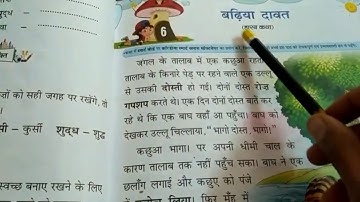 बढ़िया दावत
(हास्य कथा)
6
जंगल के तालाब में एक कछुआ रहता
तालाब के किनारे पेड़ पर रहने वाले एक उल्लू
से उसकी दोस्ती हो गई। दोनों दोस्त रोज़
गपशप करते थे। एक दिन दोनों दोस्त बातें कर
रहे थे कि एक बाघ वहाँ आ पहुँचा। बाघ को
देखकर उल्लू चिल्लाया, "भागो दोस्त, भागो!"
कछुआ भागा। पर अपनी धीमी चाल के
कारण तालाब तक नहीं पहुँच सका। बाघ ने एक
छलाँग लगाई और कछुए को पंजे
में लिया। फिर मुँह में
शुद्ध –
वा –
जों को सही जगह पर रखेंगे, तो
सी – कुर्सी शुद्ध – शुद्ध
स्वच्छ बनाए रखने के लिए